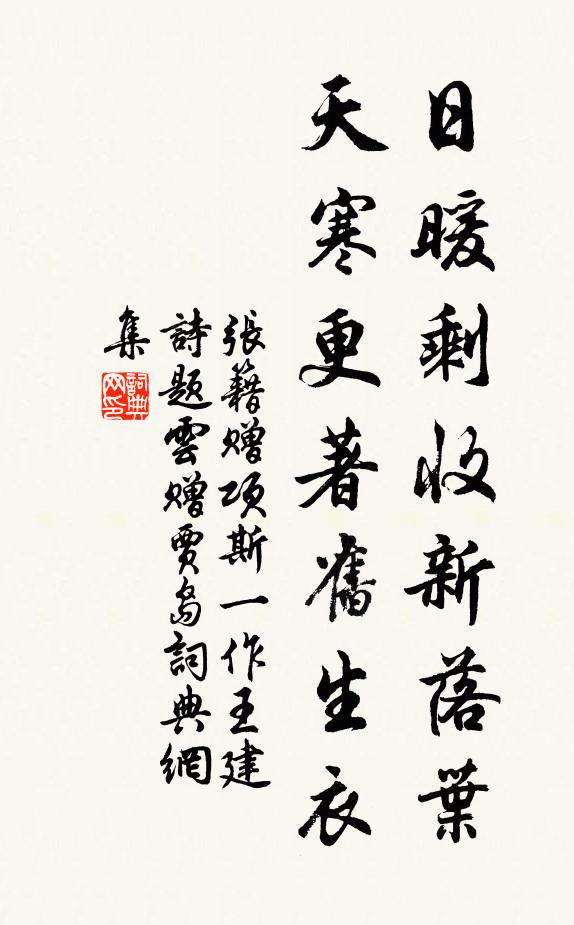 日暖剩收新落葉
天寒更著舊生衣
張籍贈項斯一作王建
詩題雲贈賈島詞典網
集
詞典
网印